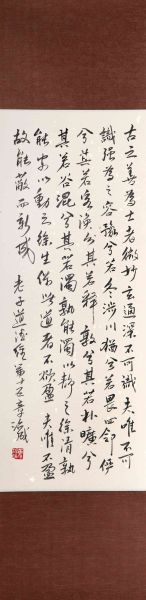 古之善为士者微妙玄通深不可识夫唯不可
识强为之容豫兮若冬涉川犹兮若畏四邻俨
兮其若客涣兮其若释敦兮其若朴旷兮
其若谷混兮其若浊孰能浊以静之徐清孰
能安以动之徐生保此道者不欲盈夫唯不盈
故能蔽而新成
老子道德经第十五章